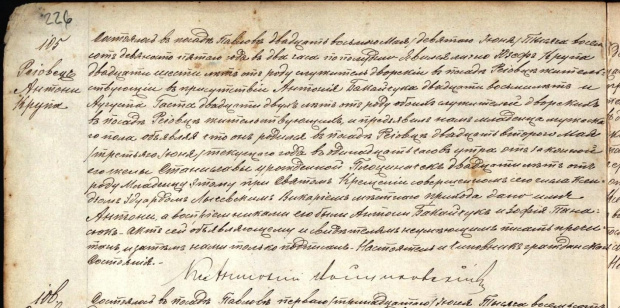 226
105
Реiовецъ
Антони
Крупа
Состоялся въ посадѣ Павловъ двадцать восьмаго Мая /девятаго Iюня/ тысяча восемь
сотъ девяносто пятаго года въ два часа по полудни. Явился лично Iосифъ Крупа
двадцати шести лѣтъ отъ роду служитель дворскiй въ посадѣ Реiовцѣ житель
ствующiй въ присутствiи Антонiя Бакайчука двадцати восьми лѣтъ и
Августа Гаста двадцати двухъ лѣтъ отъ роду обоихъ служителей дворскихъ
въ посадѣ Реiовцѣ жительствующихъ, и предъявилъ намъ младенца мужеска
го пола объявляя что онъ родился въ посадѣ Реiовцѣ двадцать втораго Мая
/третьяго Iюня/ текущаго года въ часовъ утра отъ законной
его жены Станиславы урожденной двадцати лѣтъ отъ
роду. Младенцу этому при Святомъ Крещенiи совершенномъ сего числа Ксен
дзомъ Эдуардомъ Викарiемъ мѣстнаго прихода дано имя
Антони, а воспрiемниками его были Антони Бакайчукъ и Софiя
Актъ сей объявляющему и свидѣтелямъ неумѣющимъ писать прочи
танъ, и затѣмъ нами только подписанъ. Настоятель и Чиновникъ гражданскаго
Состоянiя.
Кс. Антонiй
106
Состоялся въ посадѣ Павловъ перваго /тринадцатаго/ Iюня тысяча восемьсотъ